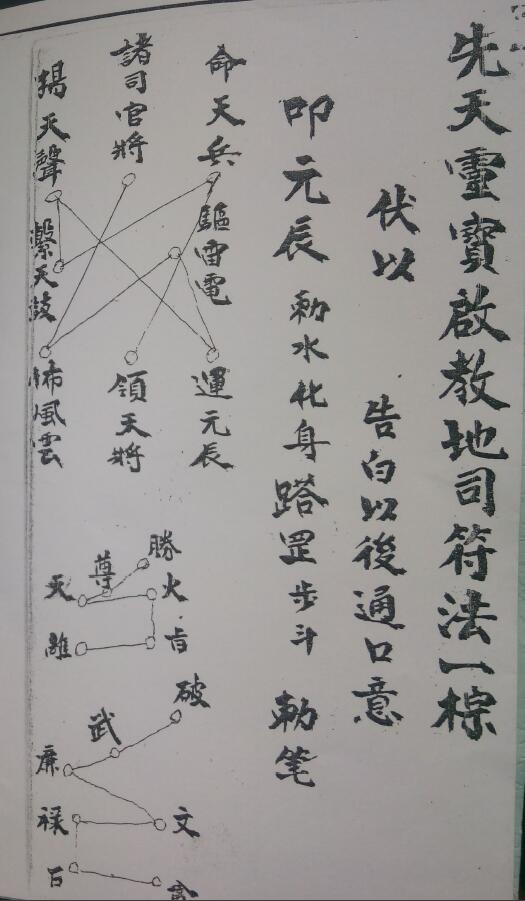 先天靈寶啟教地司符法一棕
伏以
告白以後通口意
叩元辰
勅水化身踏罡步斗
勅笔
命天兵
驅雷電
運元辰
諸司官將
領天將
揚天聲
天鼓
風雲
勝
尊
火
破
武
廉
文
祿